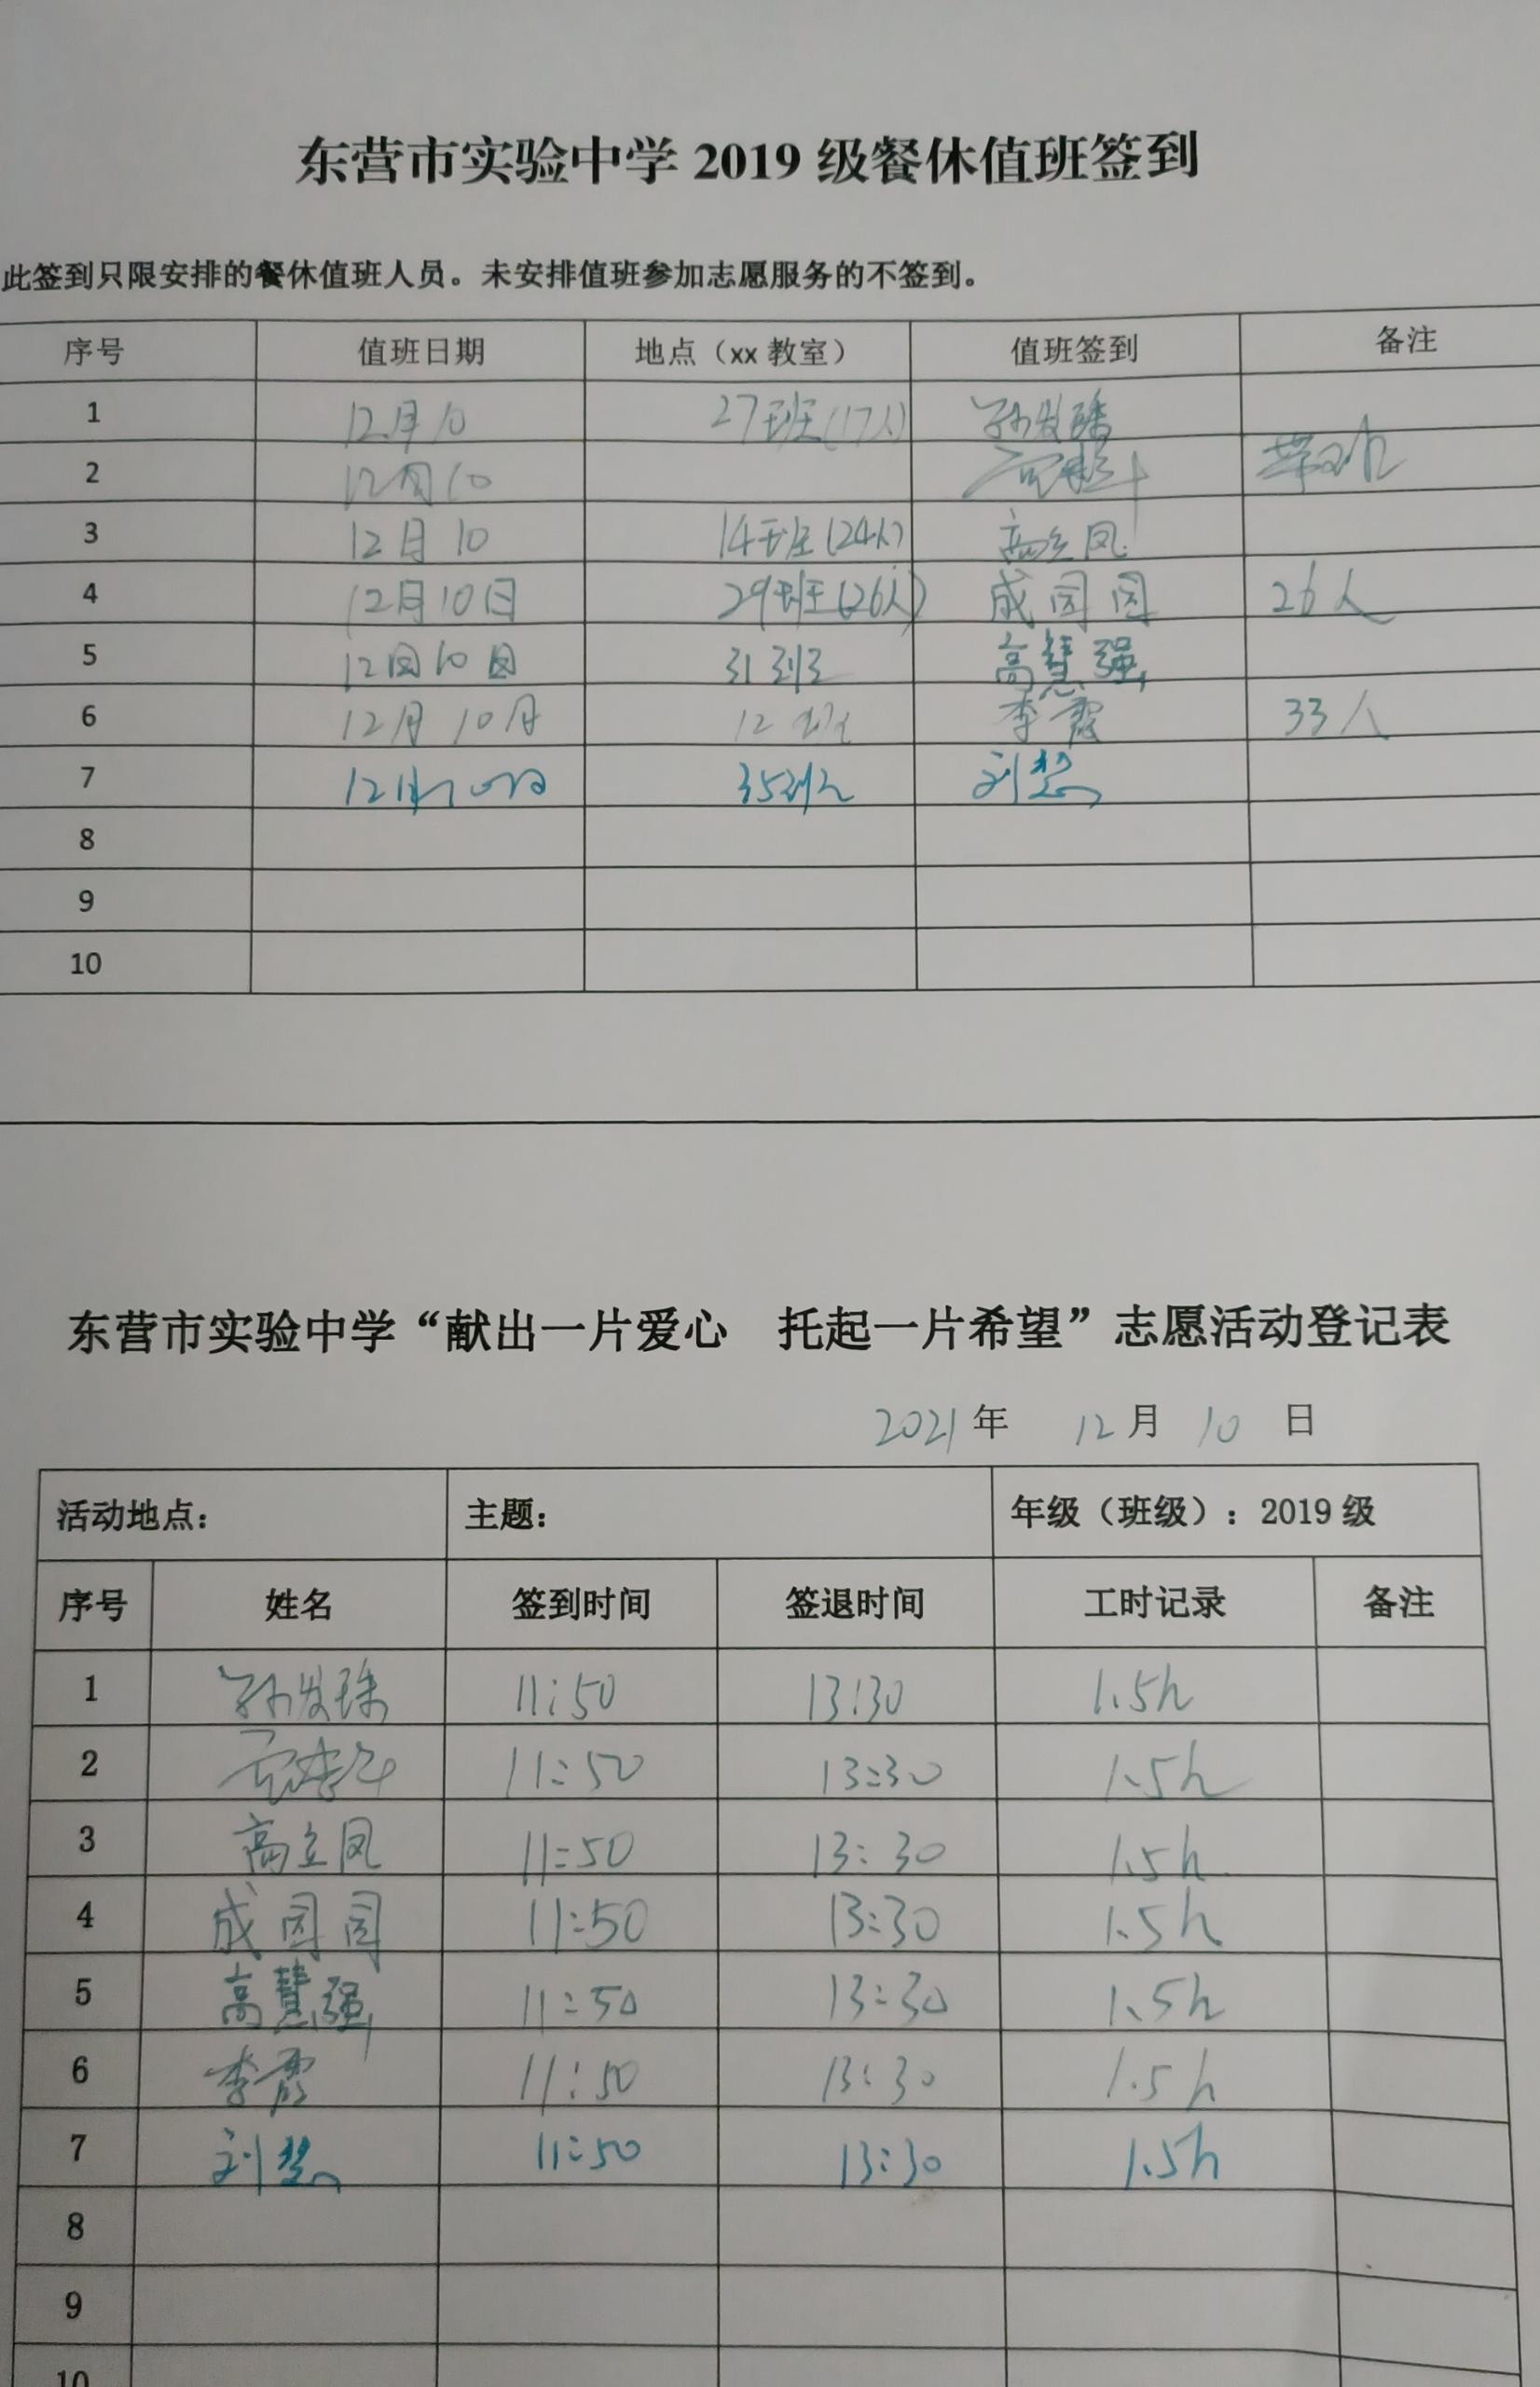 东营市实验中学 2019 级餐休值班签到
此签到只限安排的餐休值班人员。未安排值班参加志愿服务的不签到。
序号 值班日期 地点（xx 教室） 值班签到 备注
1 12月10 27班(17人)
2 12月10
3 12月10 14班(24人) 高立凤
4 12月10日 29班(26人) 成园园 26人
5 12月10日 31班 高慧强
6 12月10日 12班 李霞 33人
7 12月10日 35班 刘慧
8
9
10
东营市实验中学“献出一片爱心 托起一片希望”志愿活动登记表
2021 年 12 月 10 日
活动地点： 主题： 年级（班级）：2019 级
序号 姓名 签到时间 签退时间 工时记录 备注
1 11:50 13:30 1.5h
2 11:50 13:30 1.5h
3 高立凤 11:50 13:30 1.5h
4 成园园 11:50 13:30 1.5h
5 高慧强 11:50 13:30 1.5h
6 李霞 11:50 13:30 1.5h
7 刘慧 11:50 13:30 1.5h
8
9
10